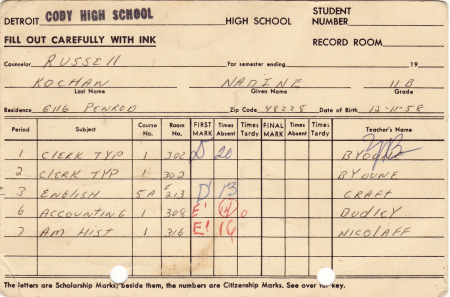 DETROIT CODY HIGH SCHOOL HIGH SCHOOL STUDENT NUMBER
FILL OUT CAREFULLY WITH INK RECORD ROOM
Counselor RUSSELL For semester ending 19
KOCHAN NADINE 11B
Last Name Given Name Grade
Residence 6116 PENROD Zip Code 48228 Date of Birth 12-11-58
Period Subject Course No. Room No. FIRST MARK Times Absent Times Tardy FINAL MARK Times Absent Times Tardy Teacher's Name
1 CLERK TYP 1 302 D 20 BYOUNE
2 CLERK TYP 1 302 BYOUNE
3 ENGLISH 5A 213 D 13 CRAFT
6 ACCOUNTING 1 308 E' 14 0 DUDLEY
7 AM HIST 1 316 E' 14 NICOLAFF
The letters are Scholarship Marks; beside them, the numbers are Citizenship Marks. See over for key.